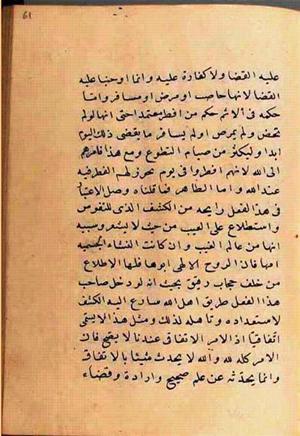 61
عليه القضا ولا كفارة عليه وانما اوجبنا عليه
القضا لانها حاضت او مرض او مسافر واما
حكمه فى الاثم حكم من افطر معتمدا حتى انها لو لم
تحض ولم يمرض او لم يسافر ما يقضى ذلك اليوم
ابدا وليكثر من صيام التطوع ومع هذا فامرهم
الى الله لانهم افطروا فى يوم يجوز لهم الفطر فيه
عند الله واما الظاهر فما قلناه وصل الاعتبار
فى هذا الفصل رايحه من الكشف الذى للنفوس
واستطلاع على الغيب من حيث لا يشعر وسببه
انها من عالم الغيب وان كانت النشاة الجسميه
امها فان الروح الالهى ابوها فلها الاطلاع
من خلف حجاب رقيق بحيث انه لو دخل صاحب
هذا الفصل طريق اهل الله سارع اليه الكشف
لاستعداده وتاهله لذلك ومثل هذا لا يسمى
اتفاقيا اذ الامر الاتفاقى عندنا لا يصح فان
الامر كله لله والله لا يحدث شيئا بالاتفاق
وانما يحدثه عن علم صحيح وارادة وقضاء